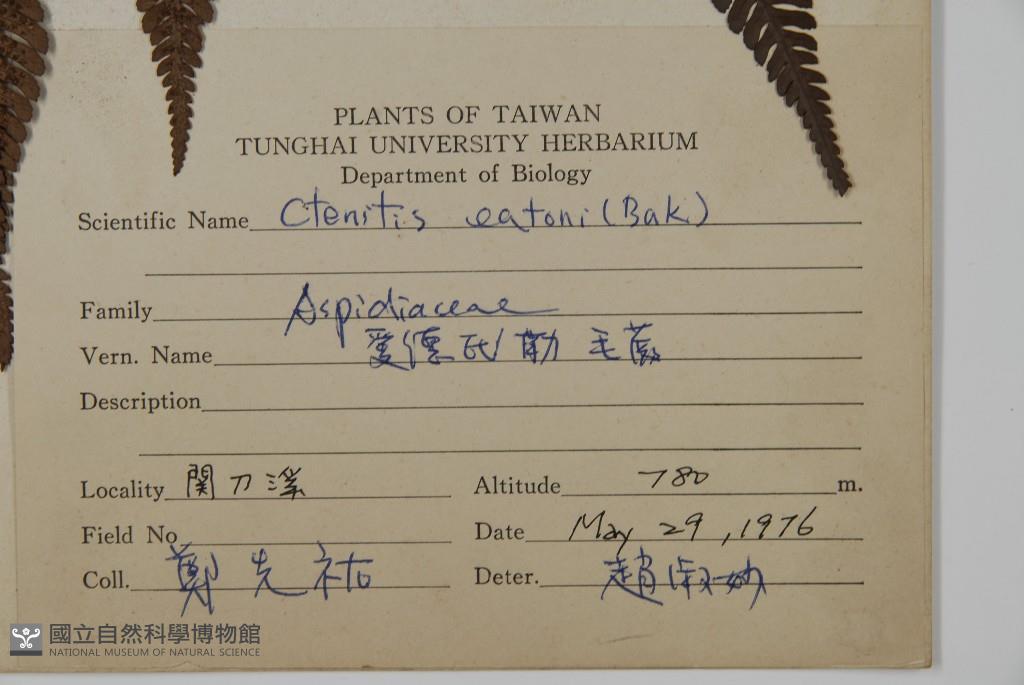 PLANTS OF TAIWAN
TUNGHAI UNIVERSITY HERBARIUM
Department of Biology
Scientific Name Ctenitis eatoni (Bak)
Family Aspidiaceae
Vern. Name 愛德氏肋毛蕨
Description
Locality 関刀溪 Altitude 780 m.
Field No
Date May 29, 1976
Coll. 鄭先祐 Deter. 趙淑妙
國立自然科學博物館
NATIONAL MUSEUM OF NATURAL SCIENCE